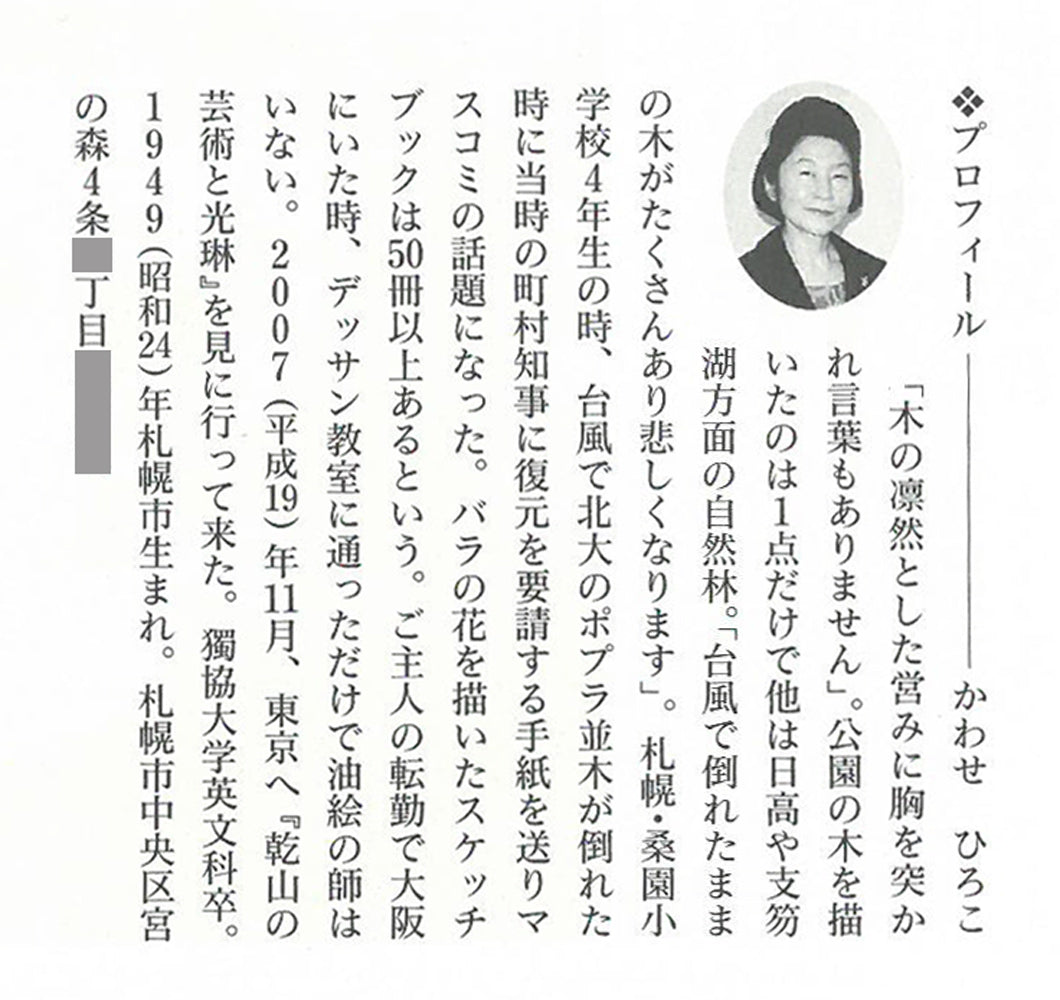 ❖プロフィール―――――かわせ　ひろこ
「木の凛然とした営みに胸を突か
れ言葉もありません」。公園の木を描
いたのは1点だけで他は日高や支笏
湖方面の自然林。「台風で倒れたまま
の木がたくさんあり悲しくなります」。札幌・桑園小
学校4年生の時、台風で北大のポプラ並木が倒れた
時に当時の町村知事に復元を要請する手紙を送りマ
スコミの話題になった。バラの花を描いたスケッチ
ブックは50冊以上あるという。ご主人の転勤で大阪
にいた時、デッサン教室に通っただけで油絵の師は
いない。2007（平成19）年11月、東京へ『乾山の
芸術と光琳』を見に行って来た。獨協大学英文科卒。
1949（昭和24）年札幌市生まれ。札幌市中央区宮
の森4条丁目